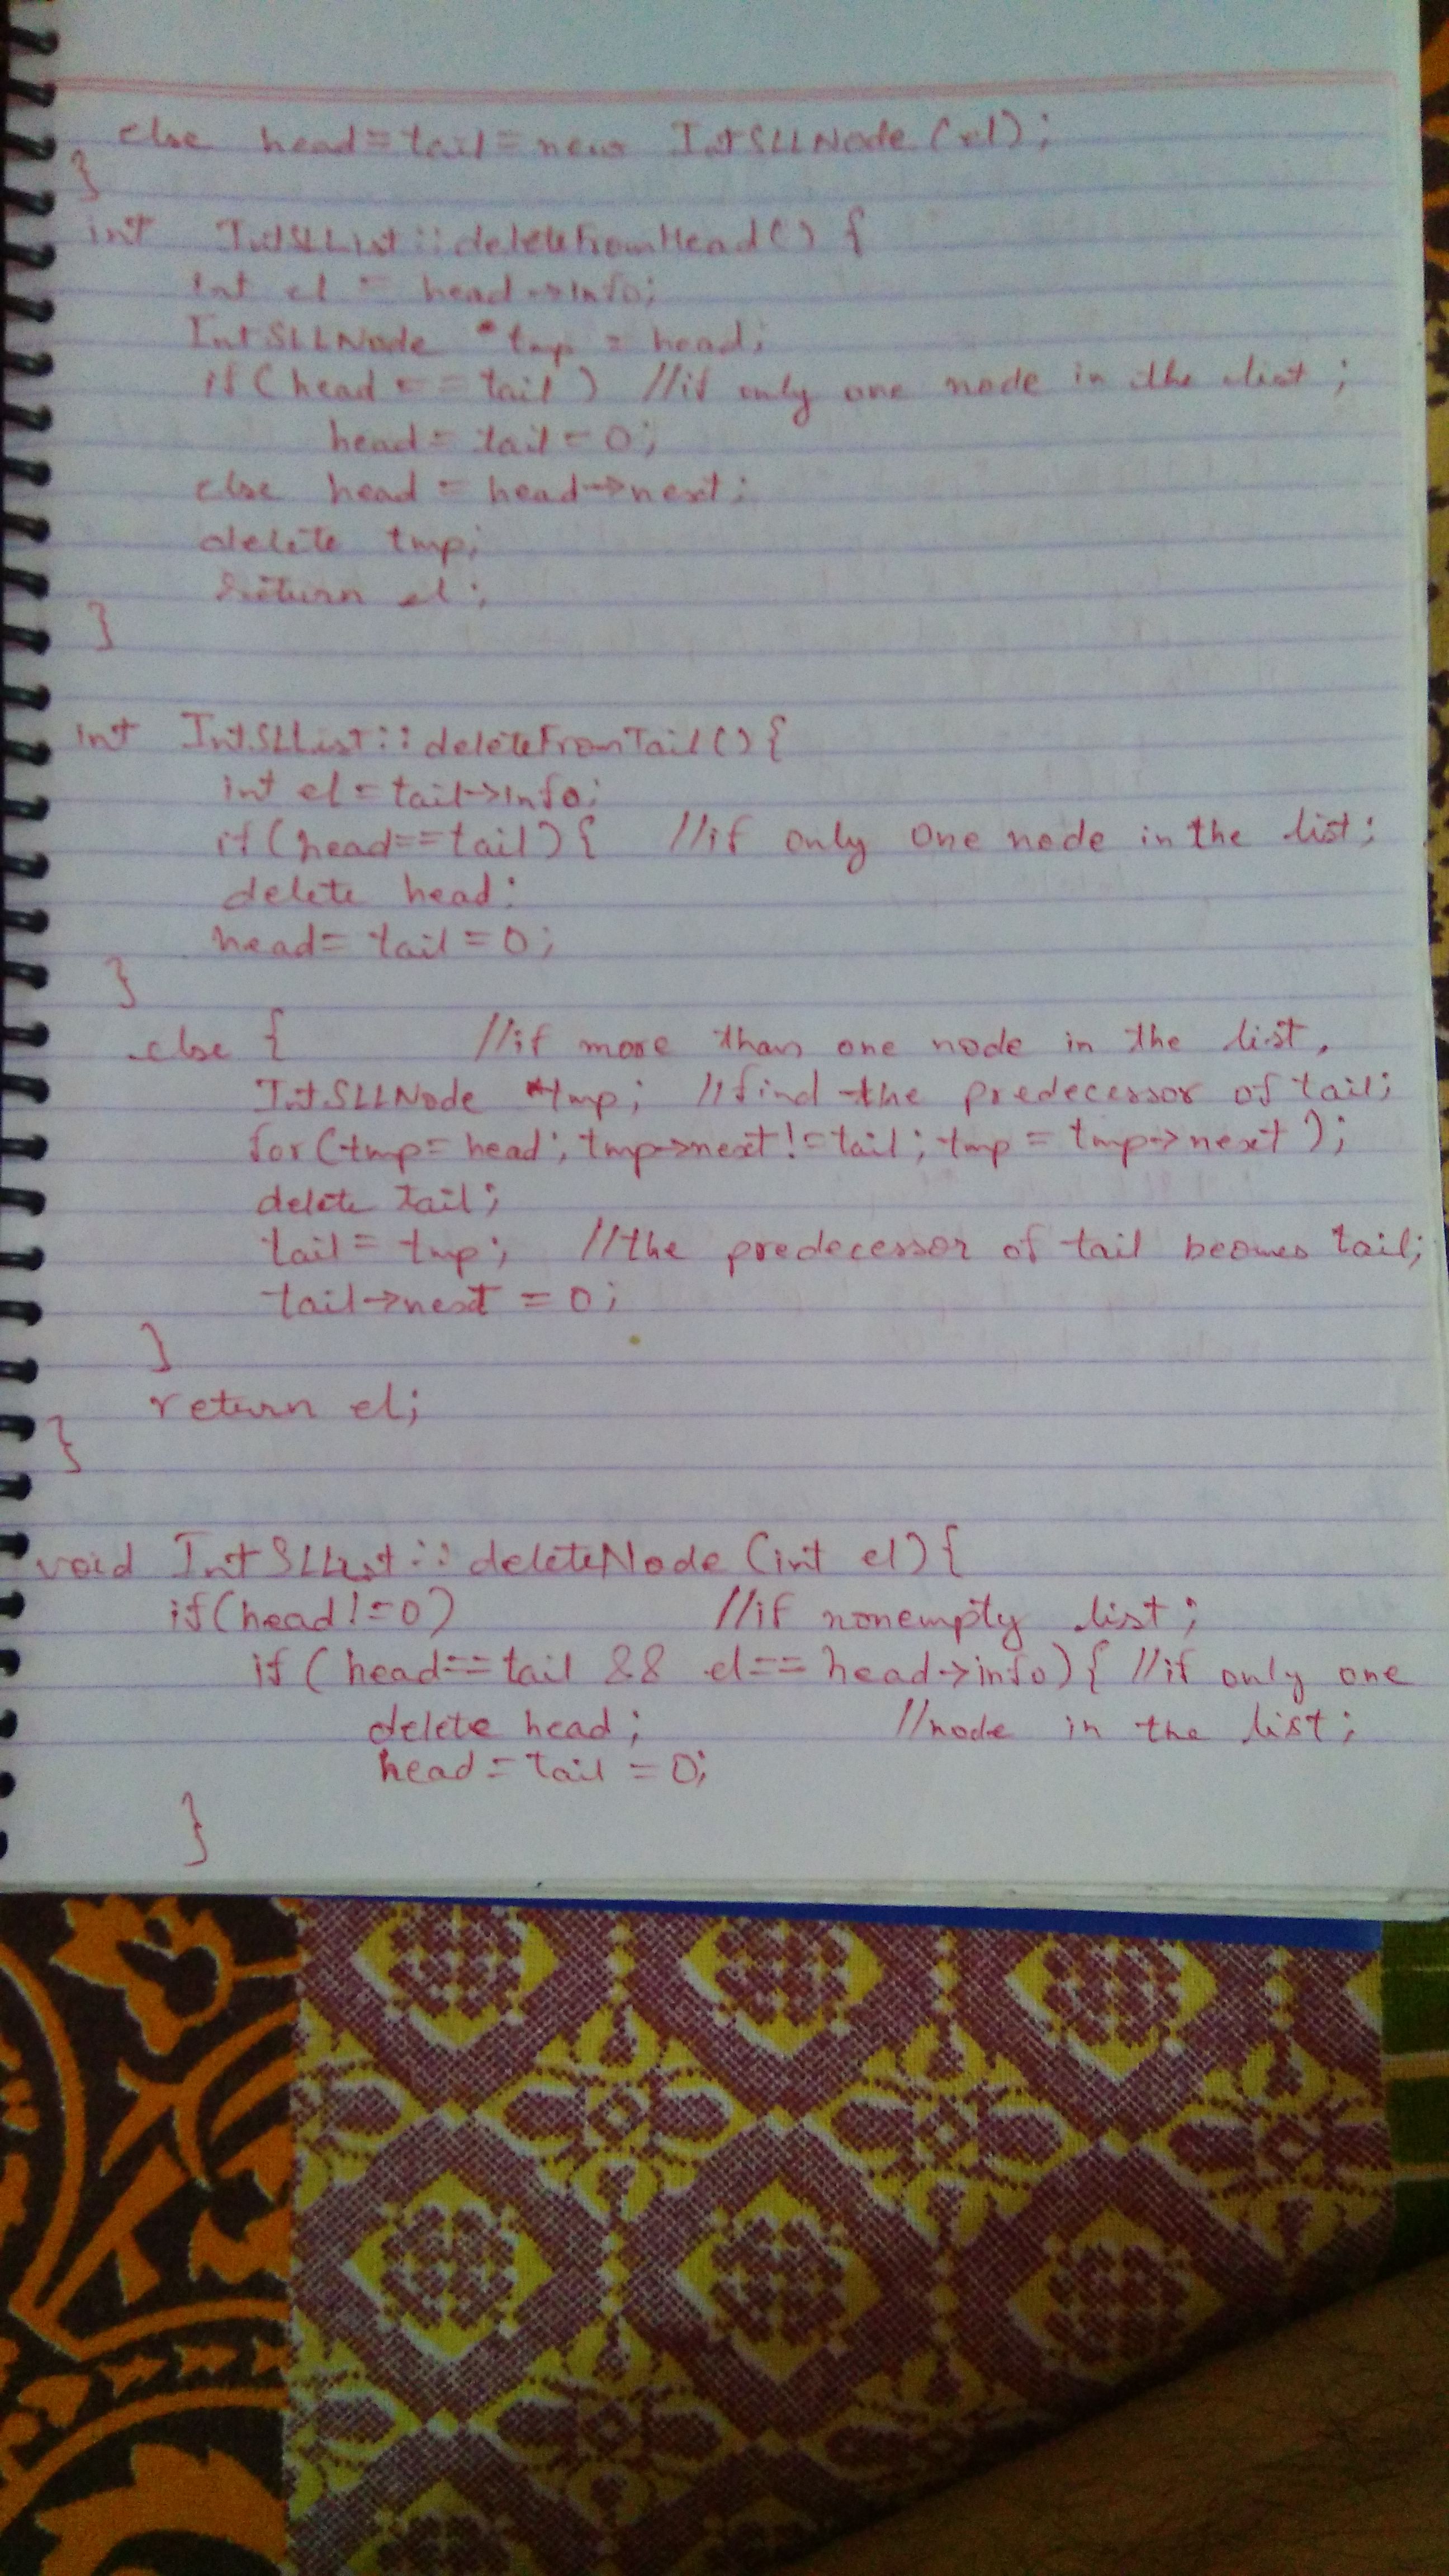 else head=tail=new IntSLLNode(el);
}
int IntSLList::deleteFromHead() {
int el = head->info;
IntSLLNode *tmp = head;
if(head == tail) //if only one node in the list;
head = tail = 0;
else head = head->next;
delete tmp;
return el;
}
int IntSLList::deleteFromTail(){
int el = tail->info;
if(head==tail){ //if only one node in the list;
delete head;
head= tail = 0;
}
else { //if more than one node in the list,
IntSLLNode *tmp; //find the predecessor of tail;
for(tmp= head; tmp->next!=tail; tmp = tmp->next);
delete tail;
tail = tmp; //the predecessor of tail becomes tail;
tail->next = 0;
}
return el;
}
void IntSLList::deleteNode (int el){
if(head!=0) //if nonempty list;
if (head==tail && el== head->info){ //if only one
delete head; //node in the list;
head = tail = 0;
}